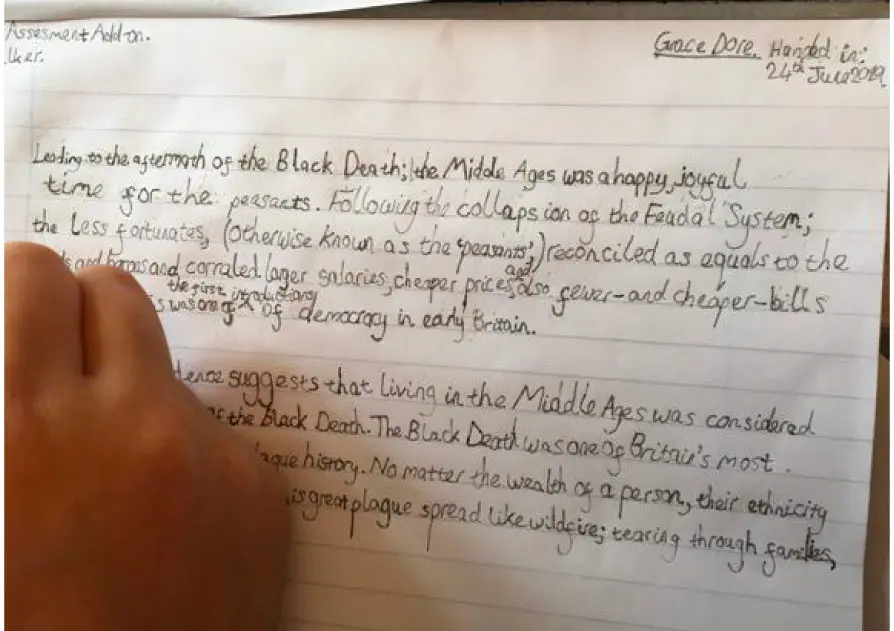 Assesment Add-on.
Grace Dore. Handed in:
24th June 2019
Leading to the aftermath of the Black Death; the Middle Ages was a happy, joyful
time for the peasants. Following the collapsion of the Feudal System;
the less fortunates, (otherwise known as the 'peasants',) reconciled as equals to the
and and corraled larger salaries, cheaper prices, and also fewer-and cheaper-bills
was one of the first introductions of democracy in early Britain.
suggests that living in the Middle Ages was considered
the Black Death. The Black Death was one of Britain's most
history. No matter the wealth of a person, their ethnicity
great plague spread like wildfire; tearing through families,